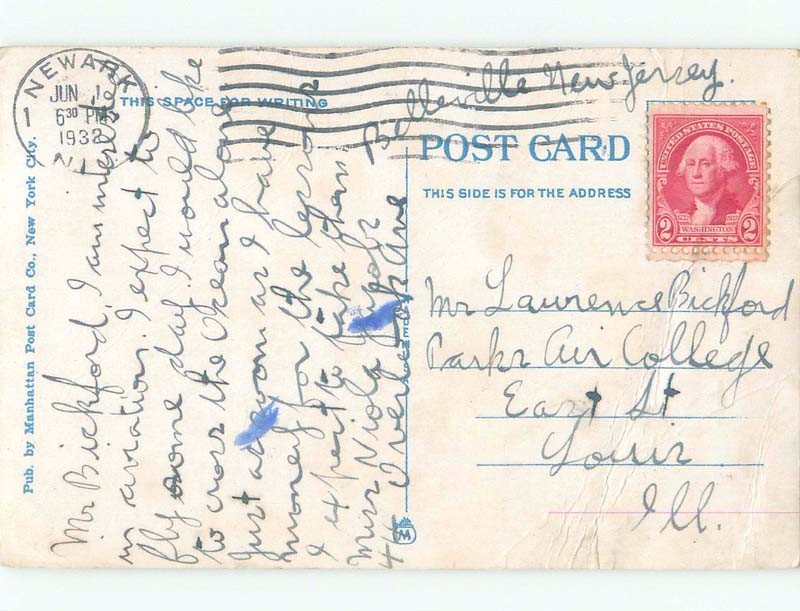 NEWARK
JUN 10
6 30 PM
1932
N.J.
1
THIS SPACE FOR WRITING
Belleville New Jersey.
POST CARD
THIS SIDE IS FOR THE ADDRESS
UNITED STATES POSTAGE
2 WASHINGTON 2
CENTS
Mr Lawrence Bickford
Parks Air College
East St
Louis
Ill.
Pub. by Manhattan Post Card Co., New York City.
Mr Bickford, I am interest
in aviation. I expect to
fly some day. I would like
to cross the Ocean alone
just as soon as I have
money for the lessons
I expect to take then
Miss Viola
44
M